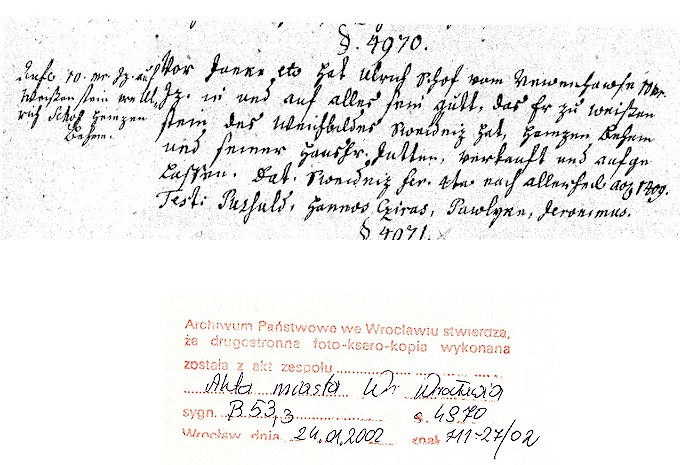 §. 4970.
Aufs 10. mr Zz. auf
Weisten stein
rich Schof Heinzen
Behem.
Vor Janko etc hat Ulrich Schof vom Newenhawse 10 mr.
Zz. in und auf alles sein gutt, das Er zu weisten
stein des Weichbildes Sweidniz hat, Heinzen Behem
und seiner Hausfr. Jutten, verkauft und aufge
Lassen. Dat. Sweidniz fer. nach allerheil 1409.
Testi: Hannos Cziras, Pawlyne, Jeronimus.
§ 4971.
Archiwum Państwowe we Wrocławiu stwierdza,
że drugostronna foto-ksero-kopia wykonana
została z akt zespołu
Akta miasta Wrocławia
sygn. B 53,3 s. 4970
Wrocław, dnia 24.01.2002 znak 711-27/02